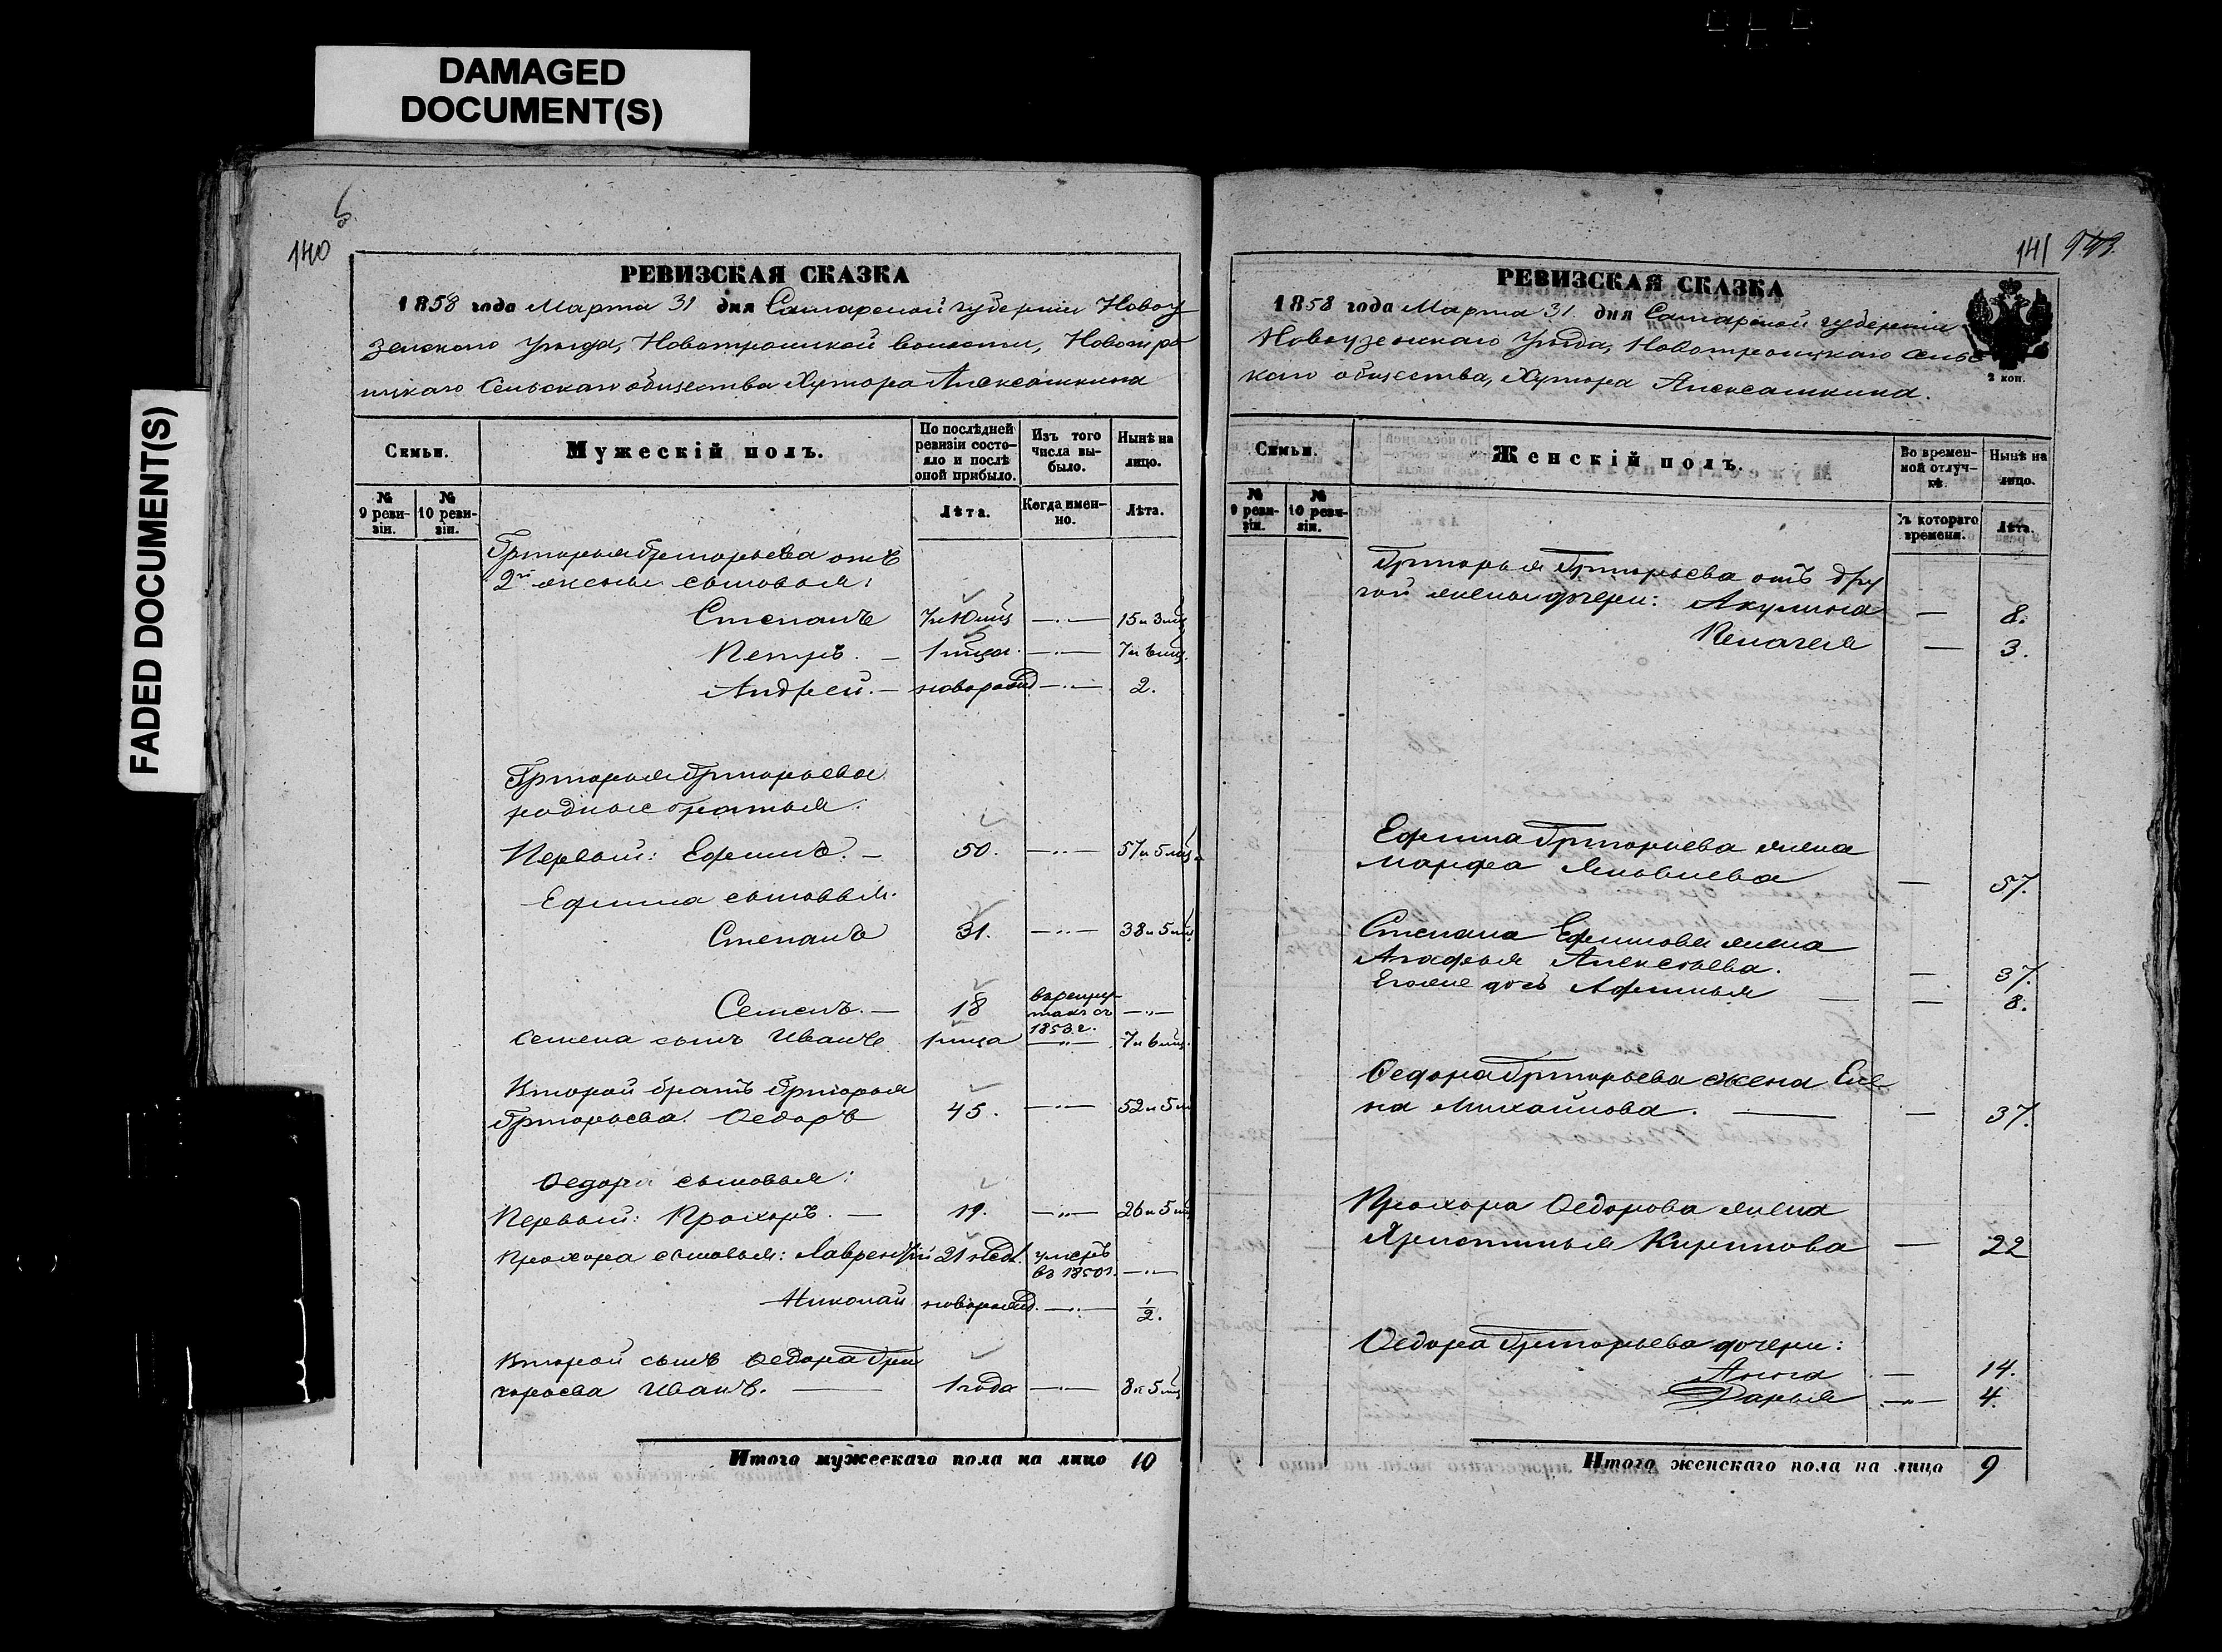 DAMAGED
DOCUMENT(S)
FADED DOCUMENT(S)
140
РЕВИЗСКАЯ СКАЗКА
1858 года Марта 31 дня Самарской губернии Новоу
зенского Уѣзда, Новотроицкой волости, Новотро
ицкаго Сельскаго общества Хутора Алексашкина
Семьи.
Мужескій полъ.
По послѣдней ревизіи состояло и послѣ оной прибыло.
Изъ того числа выбыло.
Нынѣ на лицо.
№ 9 ревизіи.
№ 10 ревизіи.
Лѣта.
Когда именно.
Лѣта.
Григорья Григорьева отъ
2й жены сыновья:
Степанъ 7 и 10 мцъ —"— 15 и 3 мц
Петръ. — 1 мца. —"— 7 и 6 мц.
Андрей. — новорожд —"— 2.
Григорья Григорьева
родные братья:
Первый: Ефимъ. — 50. —"— 57 и 5 мц
Ефима сыновья.
Степанъ 31. —"— 38 и 5 мц
Семенъ. — 18 в рекрутахъ съ 1853 г. —"—
Семена сынъ Иванъ 1 мца —"— 7 и 6 мц.
Второй братъ Григорья
Григорьева Ѳедоръ 45. —"— 52 и 5 м
Ѳедора сыновья:
Первый: Прохоръ. — 19. —"— 26 и 5 мц
Прохора сыновья: Лаврентій 21 нед. умеръ въ 1850 г. —"—
Николай новорожд. —"— 1/2.
Второй сынъ Ѳедора Гри
горьева Иванъ. — 1 года —"— 8 и 5 мц
Итого мужескаго пола на лицо 10
141
РЕВИЗСКАЯ СКАЗКА
1858 года Марта 31 дня Самарской губернии
Новоузенскаго Уѣзда, Новотроицкаго Сельс
каго общества, Хутора Алексашкина.
2 коп.
Семьи.
Женскій полъ.
Во временной отлучкѣ.
Нынѣ на лицо.
№ 9 ревизіи.
№ 10 ревизіи.
Съ котораго времени.
Лѣта.
Григорья Григорьева отъ дру
гой жены дочери: Акулина — 8.
Пелагея — 3.
Ефима Григорьева жена
Марфа Яковлева — 57.
Степана Ефимова жена
Агафья Алексѣева. — 37.
Его же дочь Афимья — 8.
Ѳедора Григорьева жена Еле
на Михайлова. — 37.
Прохора Ѳедорова жена
Христинья Кирилова — 22
Ѳедора Григорьева дочери:
Анна — 14.
Дарья —"— 4.
Итого женскаго пола на лицо 9